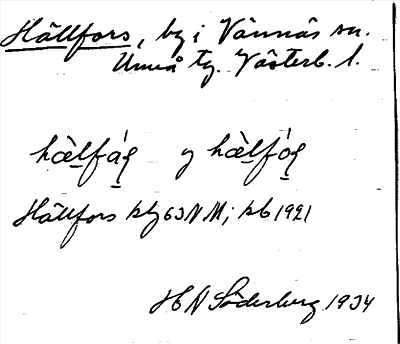 Hällfors, by i Vännäs sn.
Umeå tg. Västerb. l.
hæ̀l̠fáɽ̠ y hæ̀l̠fóɽ̠
Hällfors kbg 63 NM; kb 1921
H N Söderberg 1934